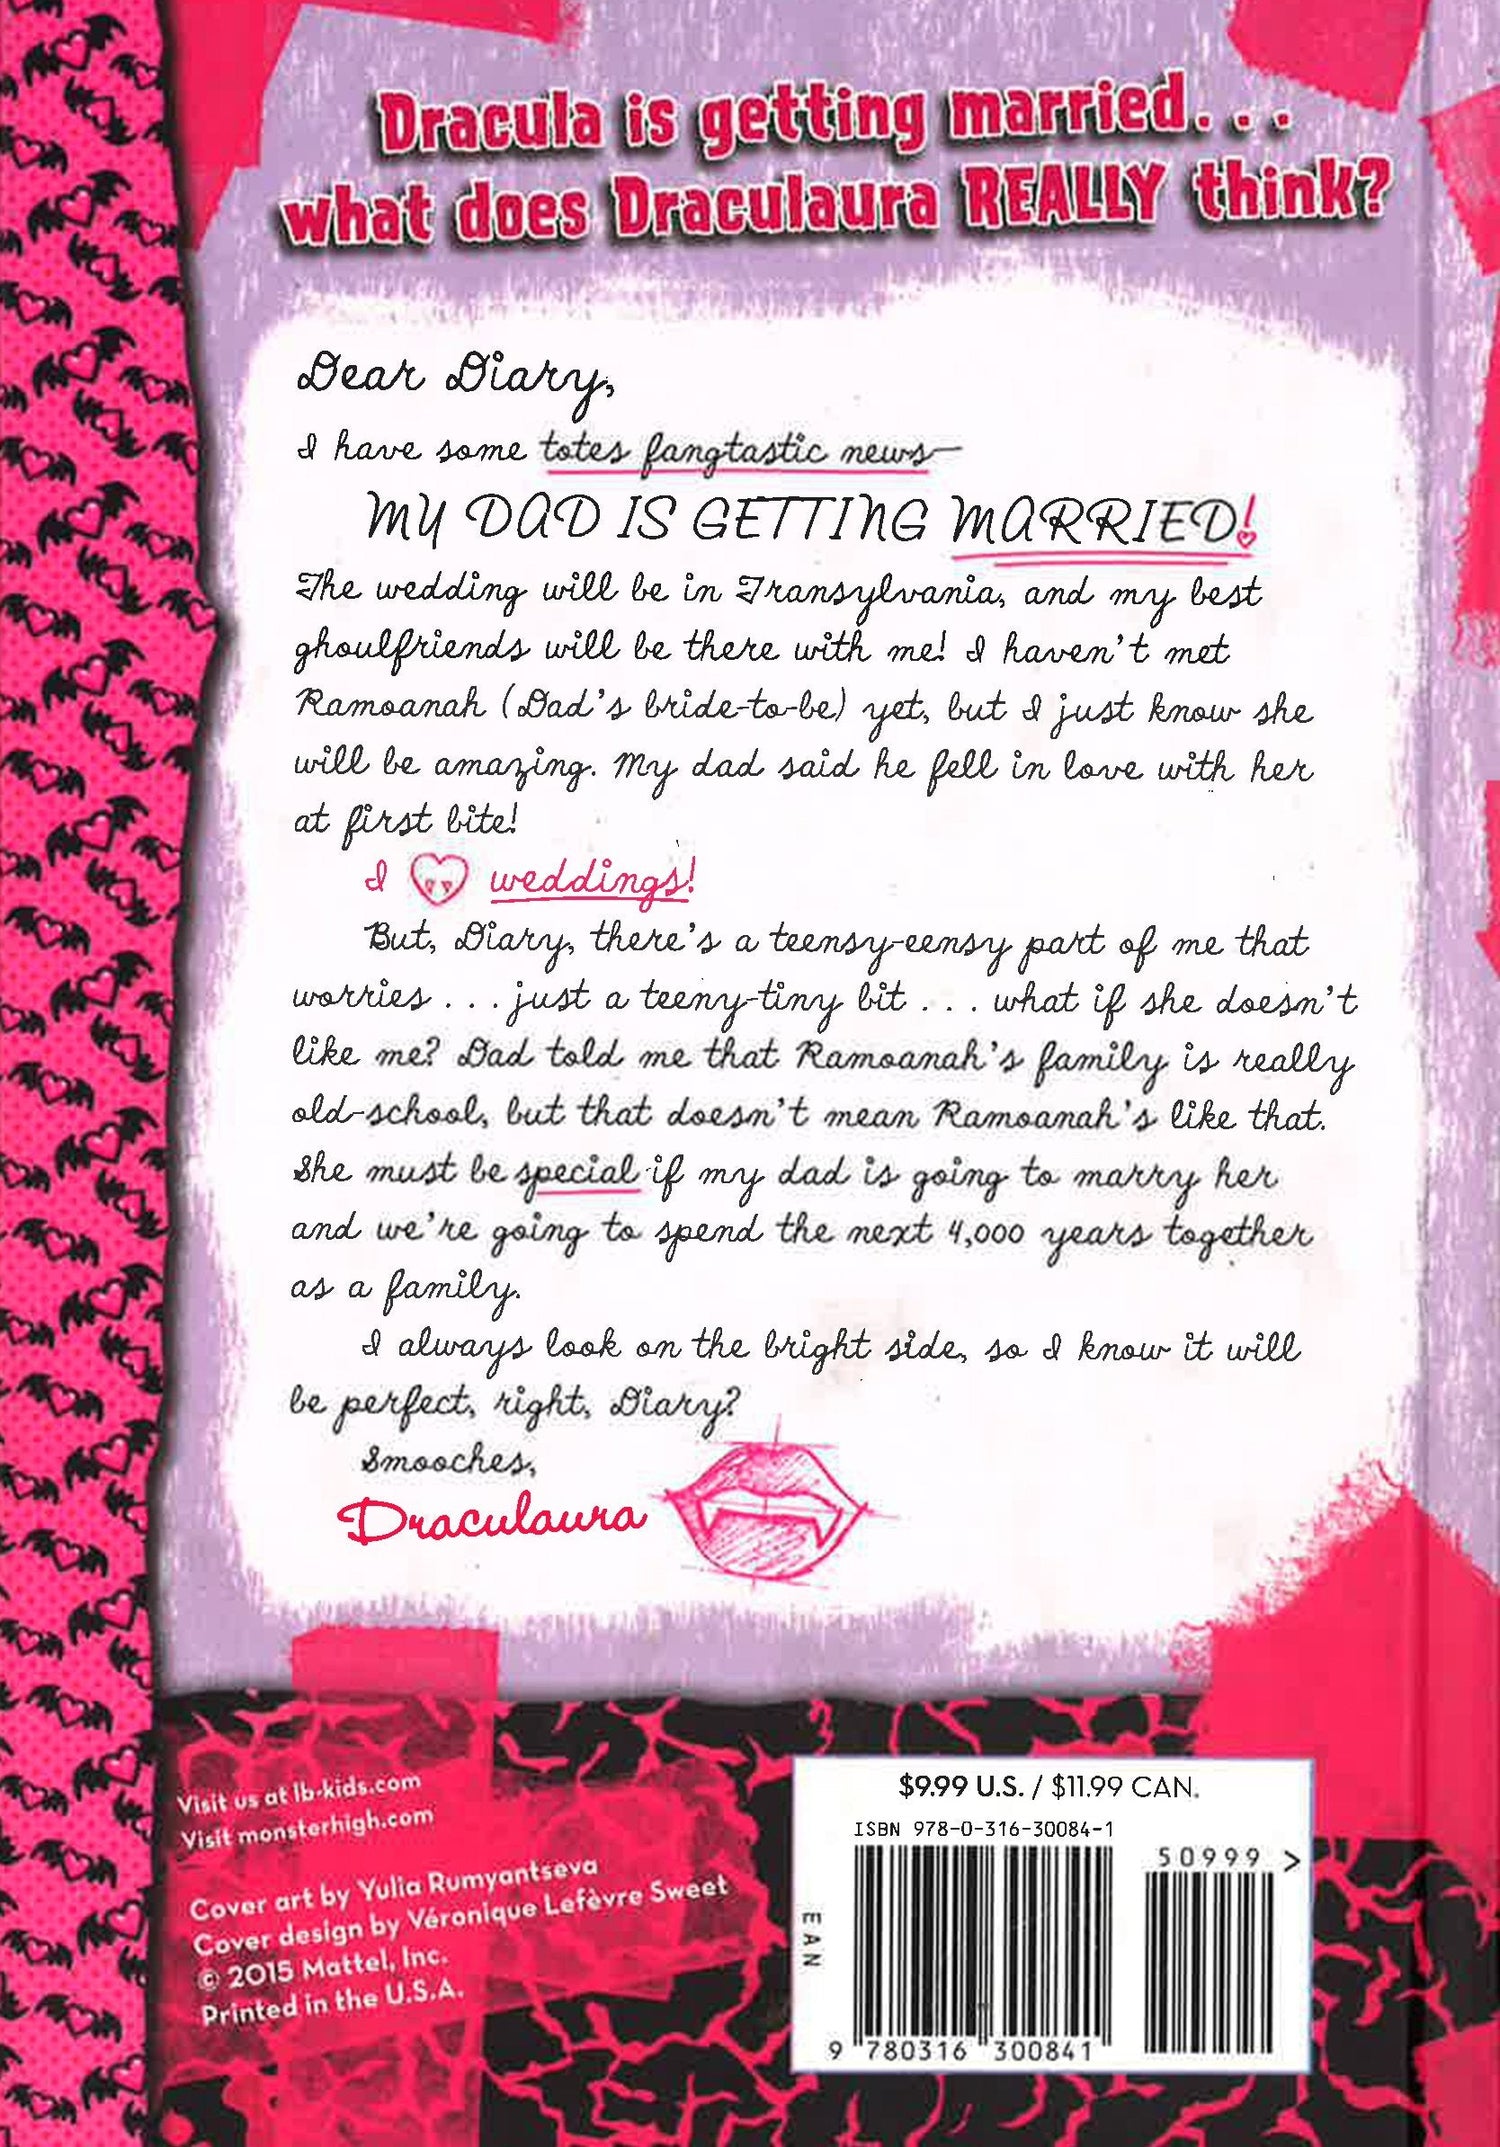 Dracula is getting married. . .
what does Draculaura REALLY think?
Dear Diary,
I have some totes fangtastic news—
MY DAD IS GETTING MARRIED!
The wedding will be in Transylvania, and my best
ghoulfriends will be there with me! I haven't met
Ramoanah (Dad's bride-to-be) yet, but I just know she
will be amazing. My dad said he fell in love with her
at first bite!
I weddings!
But, Diary, there's a teensy-eensy part of me that
worries . . . just a teeny-tiny bit . . . what if she doesn't
like me? Dad told me that Ramoanah's family is really
old-school, but that doesn't mean Ramoanah's like that.
She must be special if my dad is going to marry her
and we're going to spend the next 4,000 years together
as a family.
I always look on the bright side, so I know it will
be perfect, right, Diary?
Smooches,
Draculaura
Visit us at lb-kids.com
Visit monsterhigh.com
Cover art by Yulia Rumyantseva
Cover design by Véronique Lefèvre Sweet
© 2015 Mattel, Inc.
Printed in the U.S.A.
$9.99 U.S. / $11.99 CAN.
ISBN 978-0-316-30084-1
50999 >
EAN
9 780316 300841